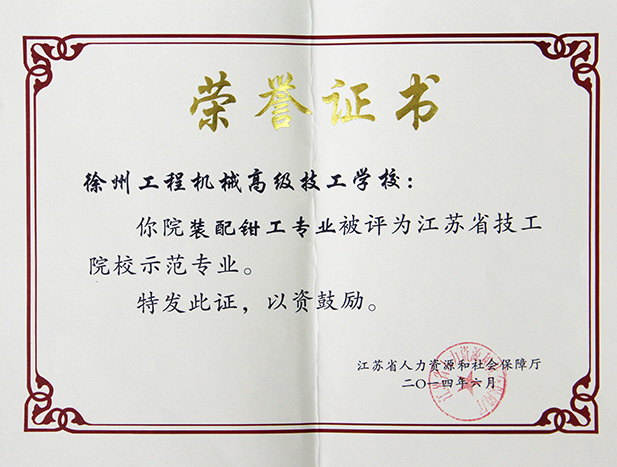 荣誉证书
徐州工程机械高级技工学校：
你院装配钳工专业被评为江苏省技工
院校示范专业。
特发此证，以资鼓励。
江苏省人力资源和社会保障厅
二〇一四年六月